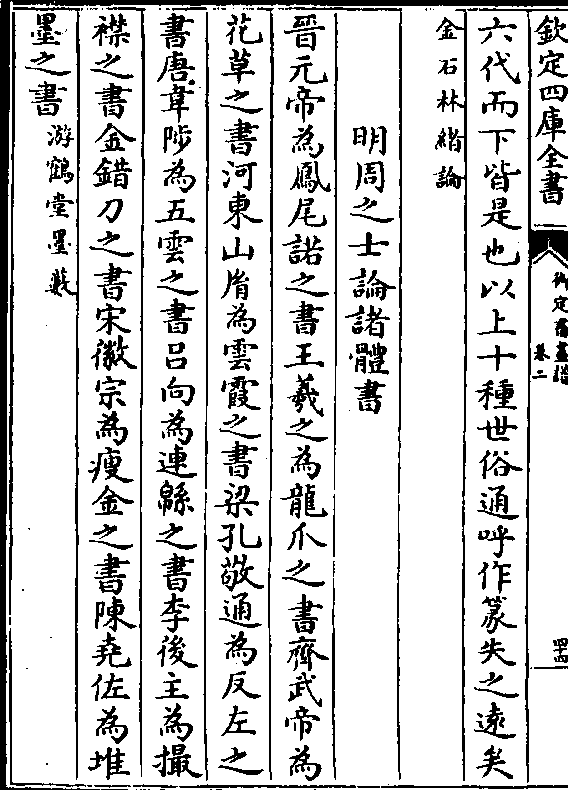 欽定四庫全書
御定書畫譜
卷二
四十四
六代而下皆是也以上十種世俗通呼作篆失之遠矣
金石林緒論
明周之士論諸體書
晉元帝為鳳尾諾之書王羲之為龍爪之書齊武帝為
花草之書河東山胤為雲霞之書梁孔敬通為反左之
書唐韋陟為五雲之書呂向為連緜之書李後主為撮
襟之書金錯刀之書宋徽宗為瘦金之書陳堯佐為堆
墨之書游鶴堂墨藪